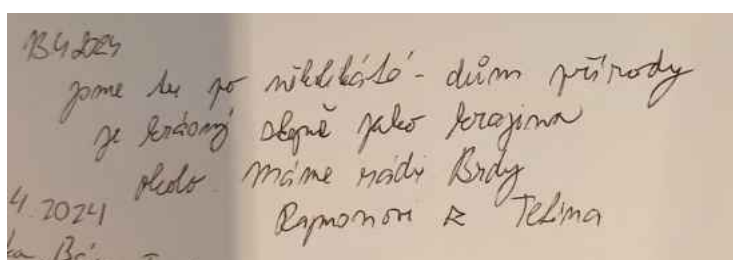 13.4.2024
jsme tu po několikáté - dům přírody
je krásný stejně jako krajina
okolo. Máme rádi Brdy
Rajmonovi z Telína
4.2024